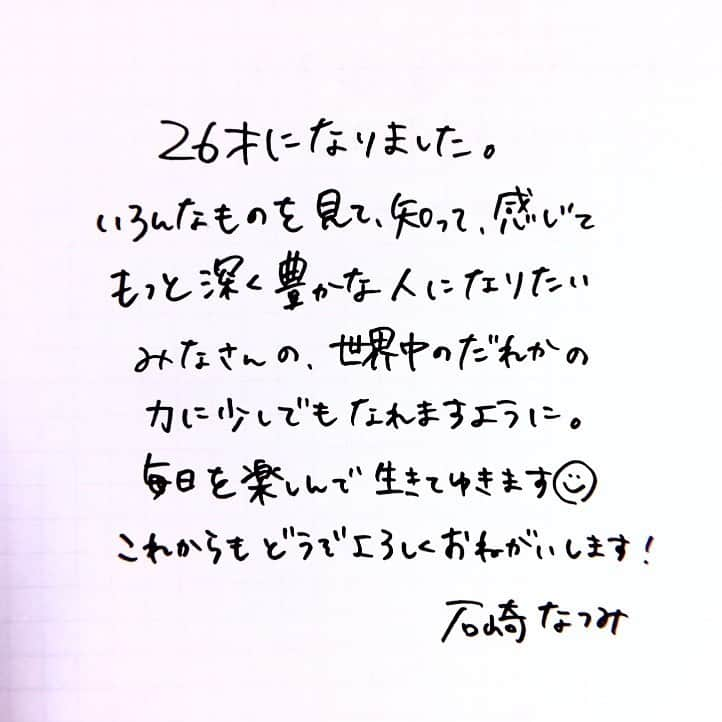 26才になりました。
いろんなものを見て、知って、感じて
もっと深く豊かな人になりたい
みなさんの、世界中のだれかの
力に少しでもなれますように。
毎日を楽しんで生きてゆきます☺
これからもどうぞよろしくおねがいします!
石崎なつみ